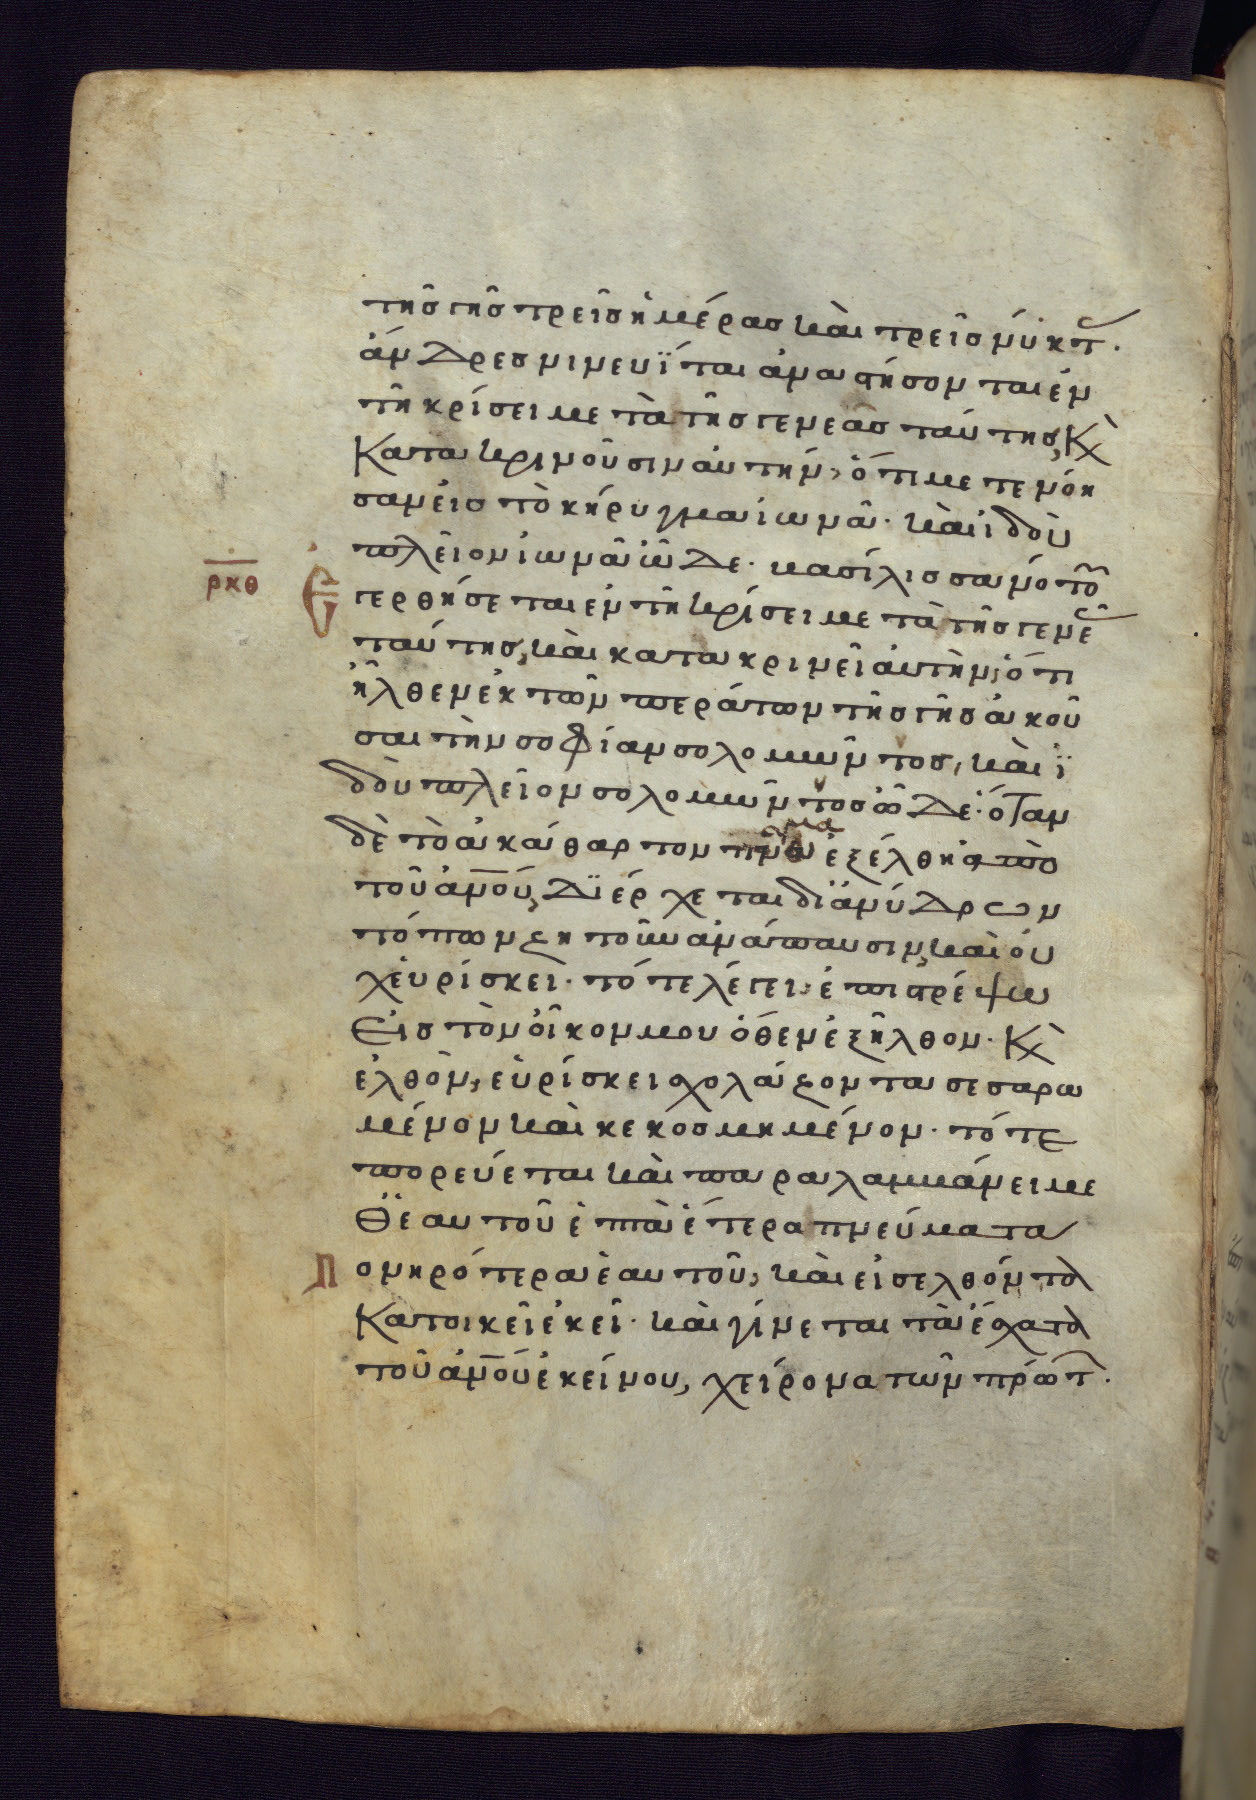 τῆς γῆς τρεῖς ἡμέρας καὶ τρεῖς νύκτ̑.
ἄνδρες νινευΐται ἀναστήσονται ἐν
τῆ κρίσει μετὰ τῆς γενεᾶς ταύτης, κ̀
κατακρινοῦσιν αὐτήν, ὅτι μετενόη
σαν εἰς τὸ κήρυγμα ἰωνᾶ. καὶ ἰδοὺ
πλεῖον ἰωνᾶ ὧδε. βασίλισσα νότο̑
ρκθ ἐγερθήσεται ἐν τῆ κρίσει μετὰ τῆς γενε̑
ταύτης, καὶ κατακρινεῖ αὐτὴν, ὅτι
ἦλθεν ἐκ τῶν περάτων τῆς γῆς ἀκοῦ
σαι τὴν σοφίαν σολομῶντος, καὶ ἰ
δοὺ πλεῖον σολομῶντος ὧδε. ὅταν
δὲ τὸ ἀκάθαρτον πνα ἐξέλθη ἀπὸ
τοῦ ἀνου, διέρχεται δι ἀνύδρων
τόπων ζητοῦν ἀνάπαυσιν, καὶ οὐ
χ εὑρίσκει. τότε λέγει, ἐπιστρέψω
εἰς τὸν οἶκον μου ὅθεν ἐξῆλθον. κ̀
ἐλθὸν, εὑρίσκει σχολάζοντα σεσαρω
μένον καὶ κεκοσμημένον. τότε
πορεύεται καὶ παραλαμβάνει με
θ ἑαυτοῦ ἑπτὰ ἕτερα πνεύματα
πονηρότερα ἑαυτοῦ, καὶ εἰσελθόντα
κατοικεῖ ἐκεῖ. καὶ γίνεται τὰ ἔσχατα
τοῦ ἀνου ἐκείνου, χείρονα τῶν πρώτ̑.